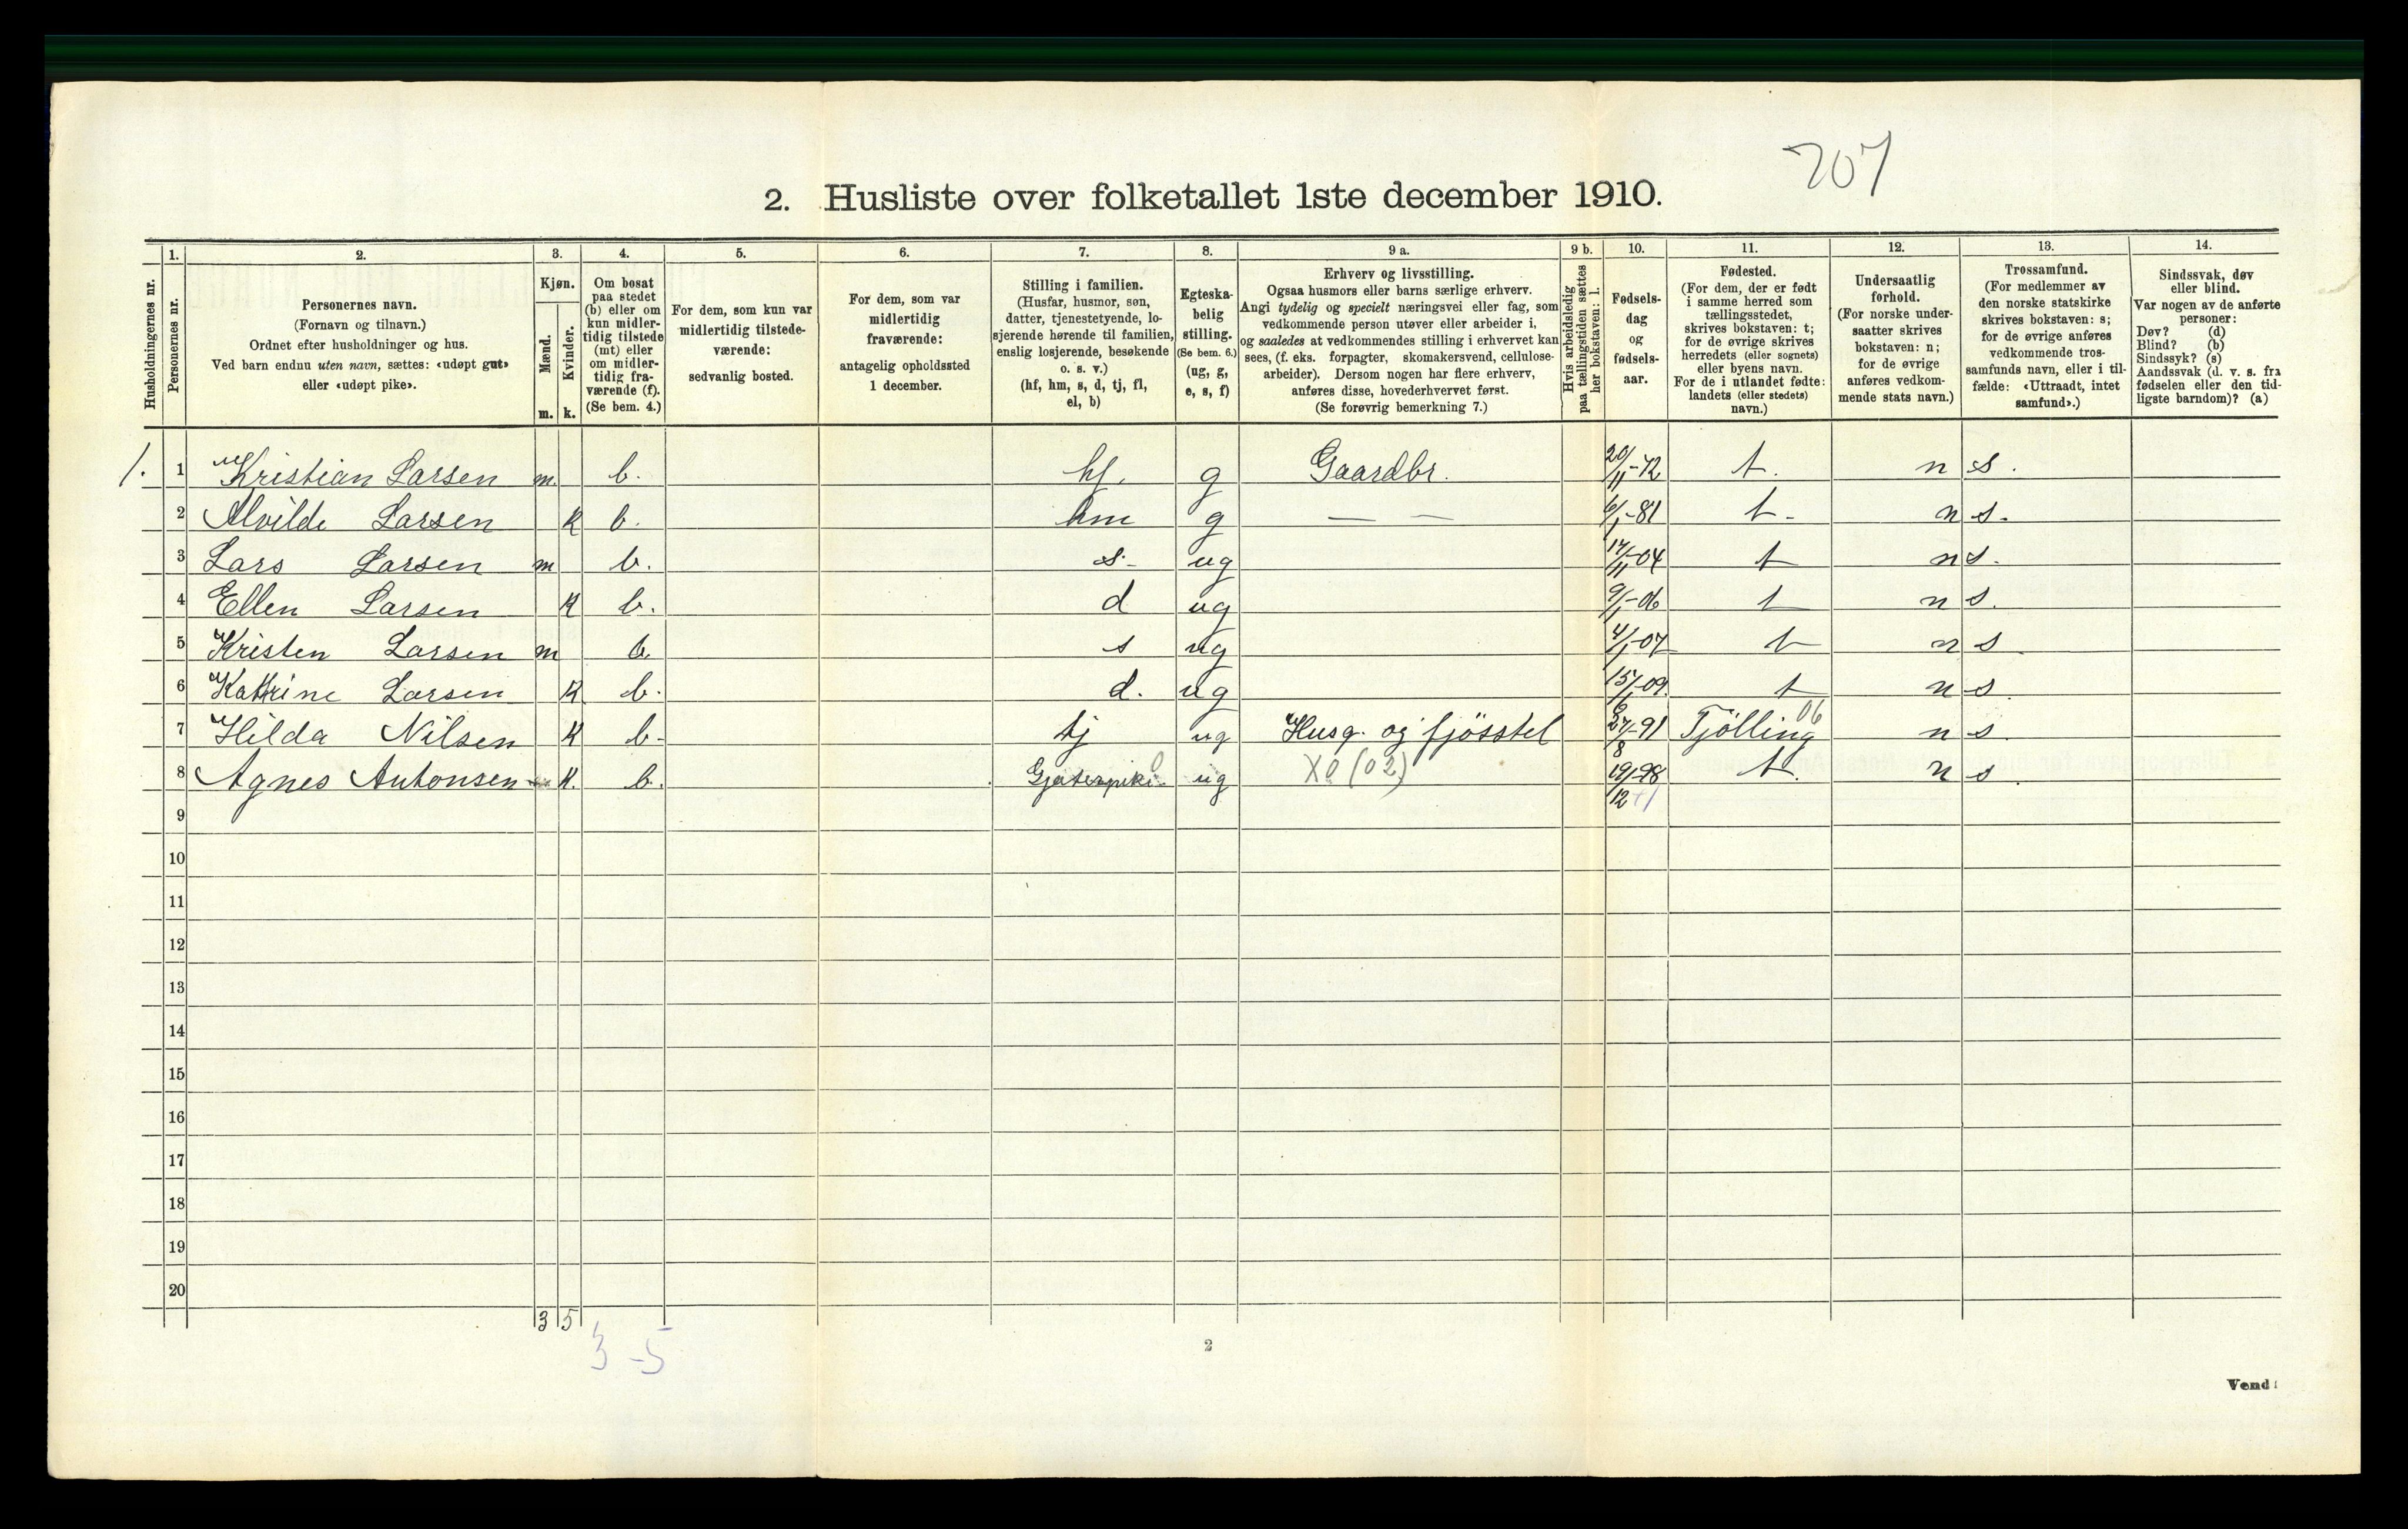 707
2. Husliste over folketallet 1ste december 1910.
1. 2. 3. 4. 5. 6. 7. 8. 9 a. 9 b. 10. 11. 12. 13. 14.
Husholdningernes nr.
Personernes nr.
Personernes navn.
(Fornavn og tilnavn.)
Ordnet efter husholdninger og hus.
Ved barn endnu uten navn, sættes: «udøpt gut»
eller «udøpt pike».
Kjøn.
Mænd.
Kvinder.
m. k.
Om bosat
paa stedet
(b) eller om
kun midler-
tidig tilstede
(mt) eller
om midler-
tidig fra-
værende (f).
(Se bem. 4.)
For dem, som kun var
midlertidig tilstede-
værende:
sedvanlig bosted.
For dem, som var
midlertidig
fraværende:
antagelig opholdssted
1 december.
Stilling i familien.
(Husfar, husmor, søn,
datter, tjenestetyende, lo-
sjerende hørende til familien,
enslig losjerende, besøkende
o. s. v.)
(hf, hm, s, d, tj, fl,
el, b)
Egteska-
belig
stilling.
(Se bem. 6.)
(ug, g,
e, s, f)
Erhverv og livsstilling.
Ogsaa husmors eller barns særlige erhverv.
Angi tydelig og specielt næringsvei eller fag, som
vedkommende person utøver eller arbeider i,
og saaledes at vedkommendes stilling i erhvervet kan
sees, (f. eks. forpagter, skomakersvend, cellulose-
arbeider). Dersom nogen har flere erhverv,
anføres disse, hovederhvervet først.
(Se forøvrig bemerkning 7.)
Hvis arbeidsledig
paa tællingstiden sættes
her bokstaven: l.
Fødsels-
dag
og
fødsels-
aar.
Fødested.
(For dem, der er født
i samme herred som
tællingsstedet,
skrives bokstaven: t;
for de øvrige skrives
herredets (eller sognets)
eller byens navn.
For de i utlandet fødte:
landets (eller stedets)
navn.)
Undersaatlig
forhold.
(For norske under-
saatter skrives
bokstaven: n;
for de øvrige
anføres vedkom-
mende stats navn.)
Trossamfund.
(For medlemmer av
den norske statskirke
skrives bokstaven: s;
for de øvrige anføres
vedkommende tros-
samfunds navn, eller i til-
fælde: «Uttraadt, intet
samfund».)
Sindssvak, døv
eller blind.
Var nogen av de anførte
personer:
Døv? (d)
Blind? (b)
Sindssyk? (s)
Aandssvak (d. v. s. fra
fødselen eller den tid-
ligste barndom)? (a)
1. 1 Kristian Larsen m. b. hf. g Gaardbr. 20/11-72 t. n s.
2 Alvilde Larsen K b. hm g — — 6/1-81 t. n s.
3 Lars Larsen m b. s. ug 17/11-04 t n s.
4 Ellen Larsen K b. d ug 9/1-06 t n s.
5 Kristen Larsen m b. s ug 4/1-07 t n s.
6 Kathrine Larsen K b. d. ug 15/6-09. t n s.
7 Hilda Nilsen K b. tj ug Husg. og fjösstel 27/8-91 Tjölling 06 n s.
8 Agnes Antonsen K. b. Gjæterpike 0 ug X0 (02) 19/12-98 t. n s.
9
10
11
12
13
14
15
16
17
18
19
20
3 5
3-5
2
Vend!